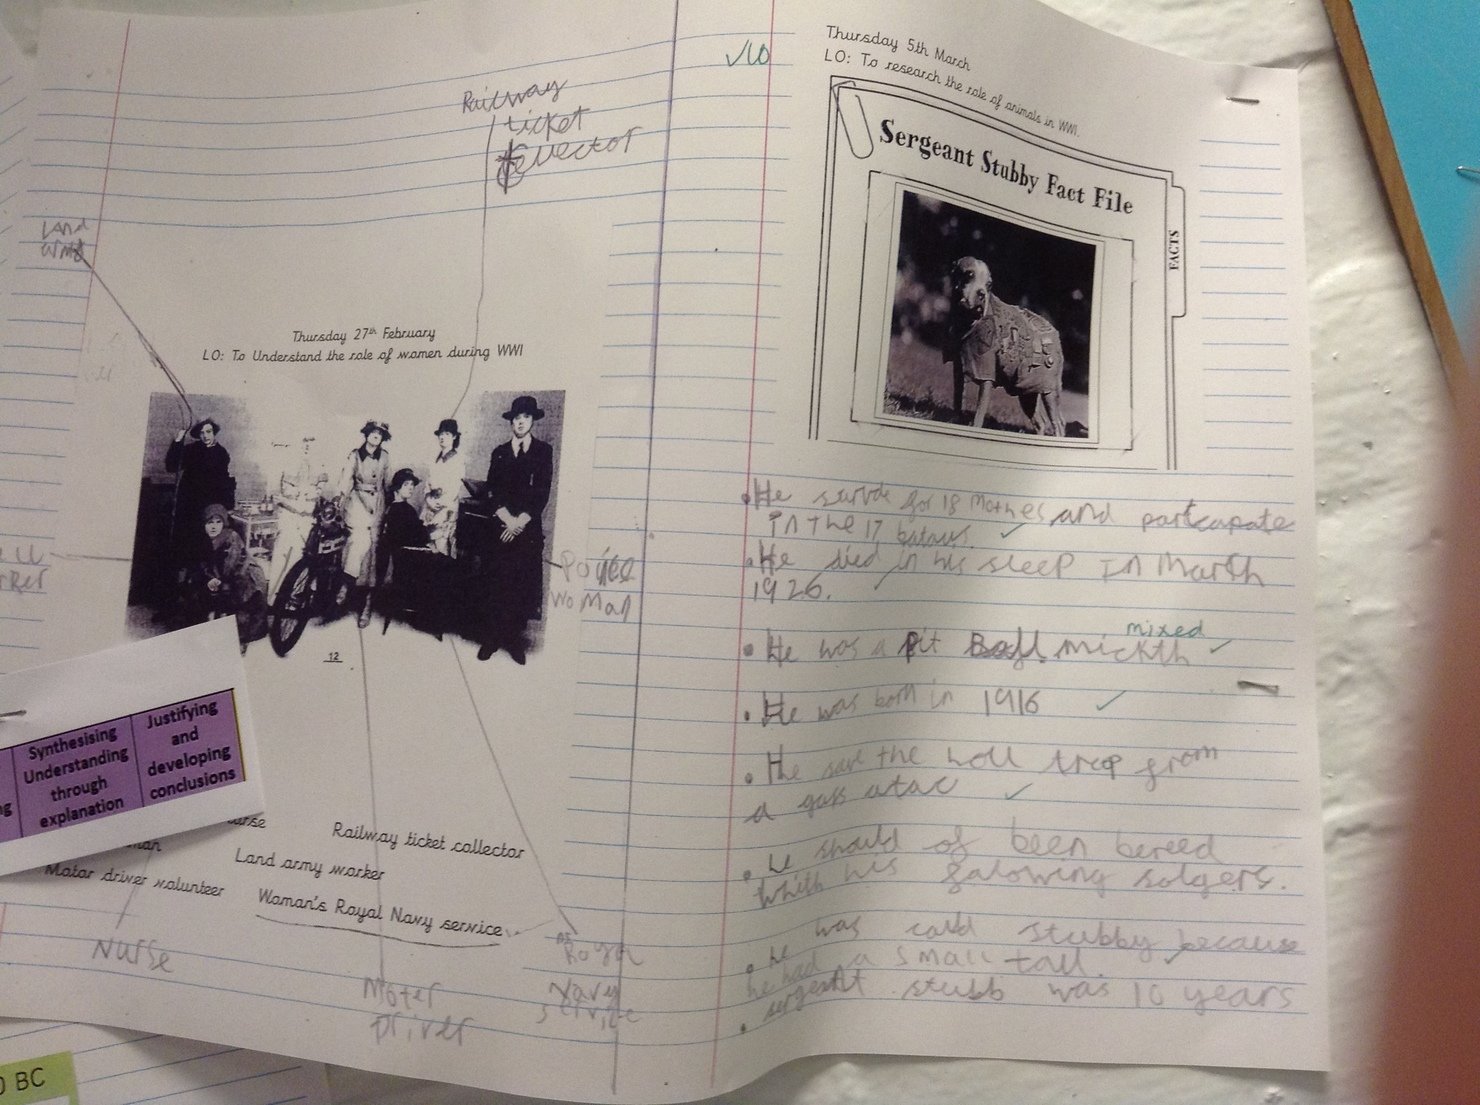 Railway
ticket
collector
Land
army
Thursday 27th February
LO: To Understand the role of women during WWI
Police
Woman
12
Synthesising
Understanding
through
explanation
Justifying
and
developing
conclusions
Railway ticket collector
Land army worker
Motor driver volunteer
Woman's Royal Navy service
Nurse
Moter
Driver
Navey
Thursday 5th March
LO: To research the role of animals in WWI.
Sergeant Stubby Fact File
FACTS
• He survde for 18 Mothes and partcapate
in the 17 bataus.
• He died in his sleep in March
1926.
mixed
• He was a Pit Ball mickth
• He was born in 1916
• He save the holl trop from
a gass atac
• he should of been bereed
whith his falowing solgers.
• he was calld stubby because
he had a small tall.
• sergeant stubb was 10 years
BC